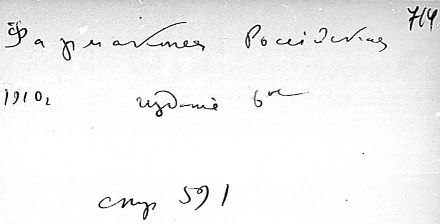 714
Фармакопея Российская
1910г издание 6ое
стр 591